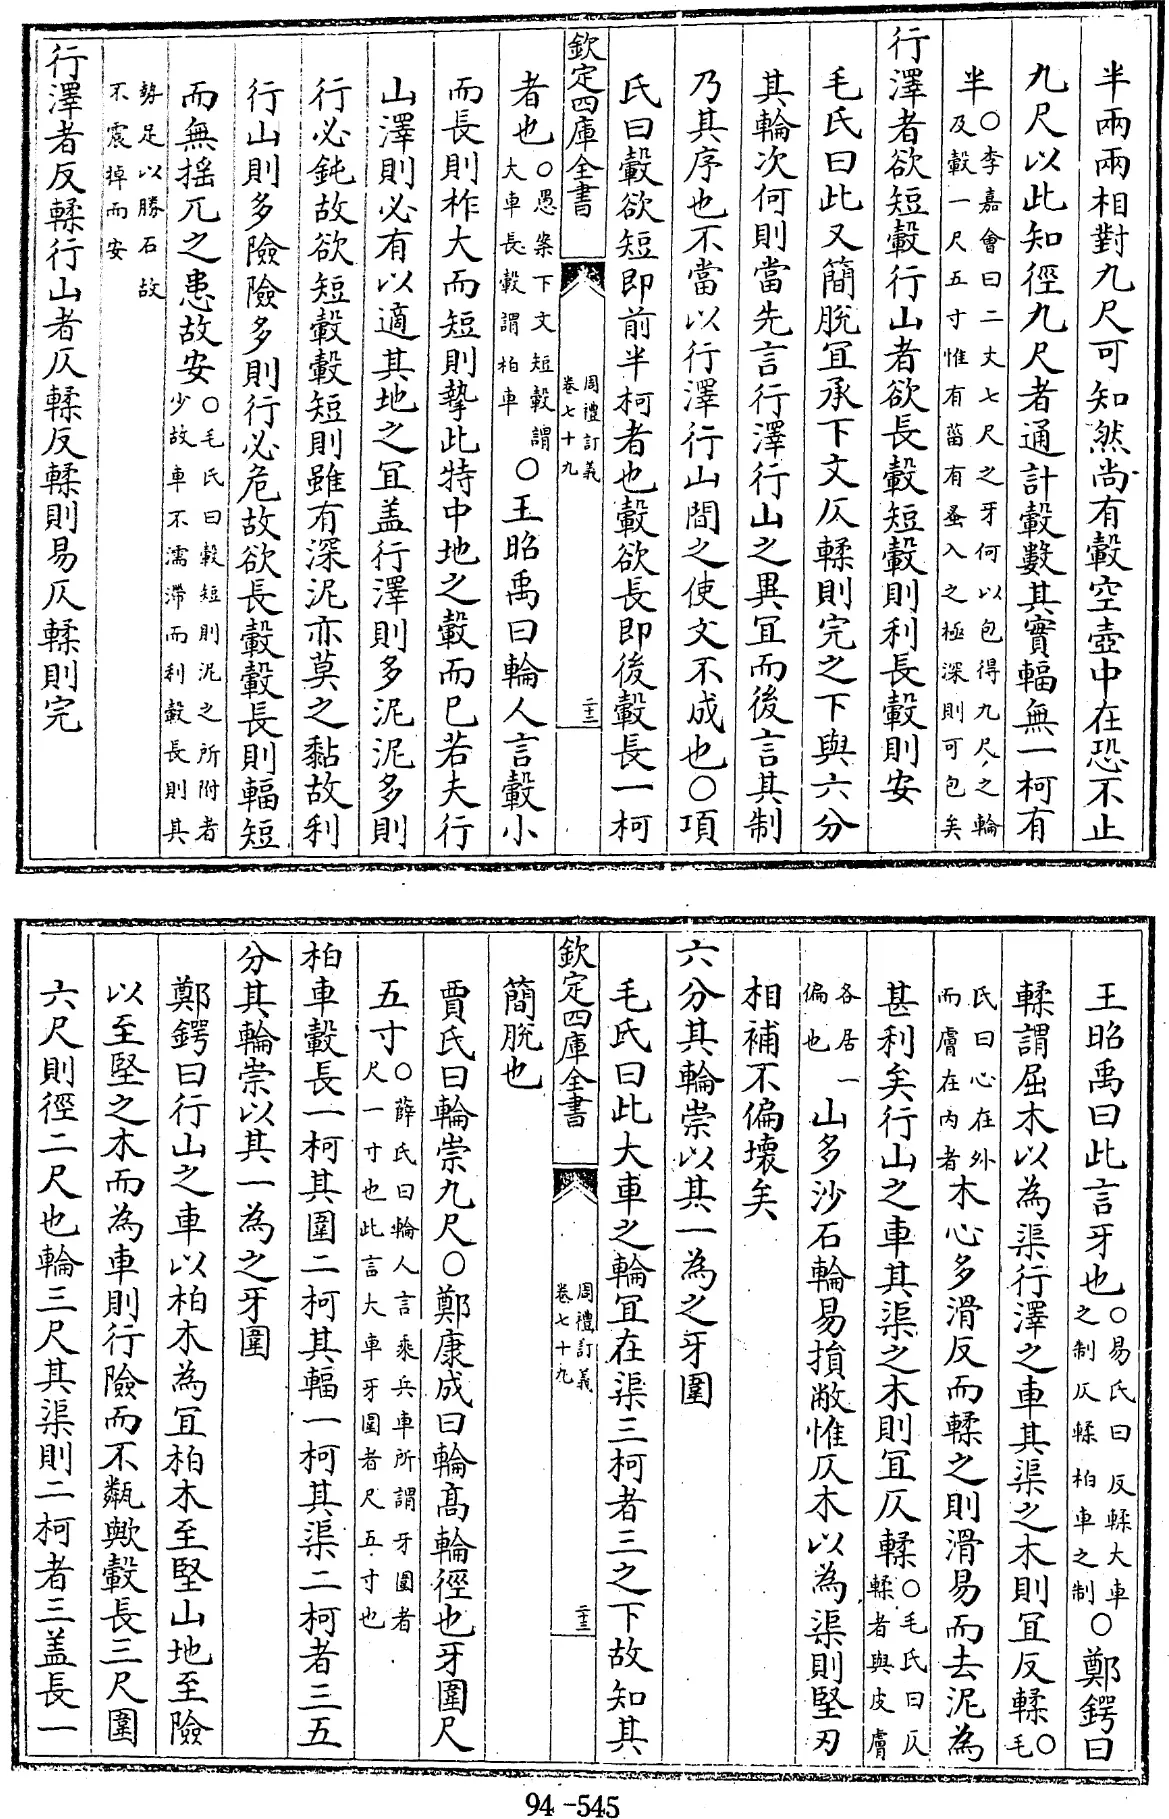 半兩兩相對九尺可知然尚有轂空壺中在恐不止
九尺以此知徑九尺者通計轂數其實輻無一柯有
半○李嘉會曰二丈七尺之牙何以包得九尺之輪及轂一尺五寸惟有菑有蚤入之極深則可包矣
行澤者欲短轂行山者欲長轂短轂則利長轂則安
毛氏曰此又簡脫宜承下文仄輮則完之下與六分
其輪次何則當先言行澤行山之異宜而後言其制
乃其序也不當以行澤行山間之使文不成也○項
氏曰轂欲短即前半柯者也轂欲長即後轂長一柯
欽定四庫全書 周禮訂義 卷七十九 二十三
者也○愚案下文短轂謂大車長轂謂柏車○王昭禹曰輪人言轂小
而長則柞大而短則摯此特中地之轂而已若夫行
山澤則必有以適其地之宜盖行澤則多泥泥多則
行必鈍故欲短轂轂短則雖有深泥亦莫之黏故利
行山則多險險多則行必危故欲長轂轂長則輻短
而無揺兀之患故安○毛氏曰轂短則泥之所附者少故車不濡滯而利轂長則其
勢足以勝石故不震掉而安
行澤者反輮行山者仄輮反輮則易仄輮則完
王昭禹曰此言牙也○易氏曰反輮大車之制仄輮柏車之制○鄭鍔曰
輮謂屈木以為渠行澤之車其渠之木則宜反輮○毛
氏曰心在外而膚在内者木心多滑反而輮之則滑易而去泥為
甚利矣行山之車其渠之木則宜仄輮○毛氏曰仄輮者與皮膚
各居一偏也山多沙石輪易損敝惟仄木以為渠則堅刃
相補不偏壊矣
六分其輪崇以其一為之牙圍
毛氏曰此大車之輪宜在渠三柯者三之下故知其
欽定四庫全書 周禮訂義 卷七十九 二十三
簡脫也
賈氏曰輪崇九尺○鄭康成曰輪髙輪徑也牙圍尺
五寸○薛氏曰輪人言乘兵車所謂牙圍者尺一寸也此言大車牙圍者尺五寸也
柏車轂長一柯其圍二柯其輻一柯其渠二柯者三五
分其輪崇以其一為之牙圍
鄭鍔曰行山之車以柏木為宜柏木至堅山地至險
以至堅之木而為車則行險而不甐歟轂長三尺圍
六尺則徑二尺也輪三尺其渠則二柯者三盖長一
94-545